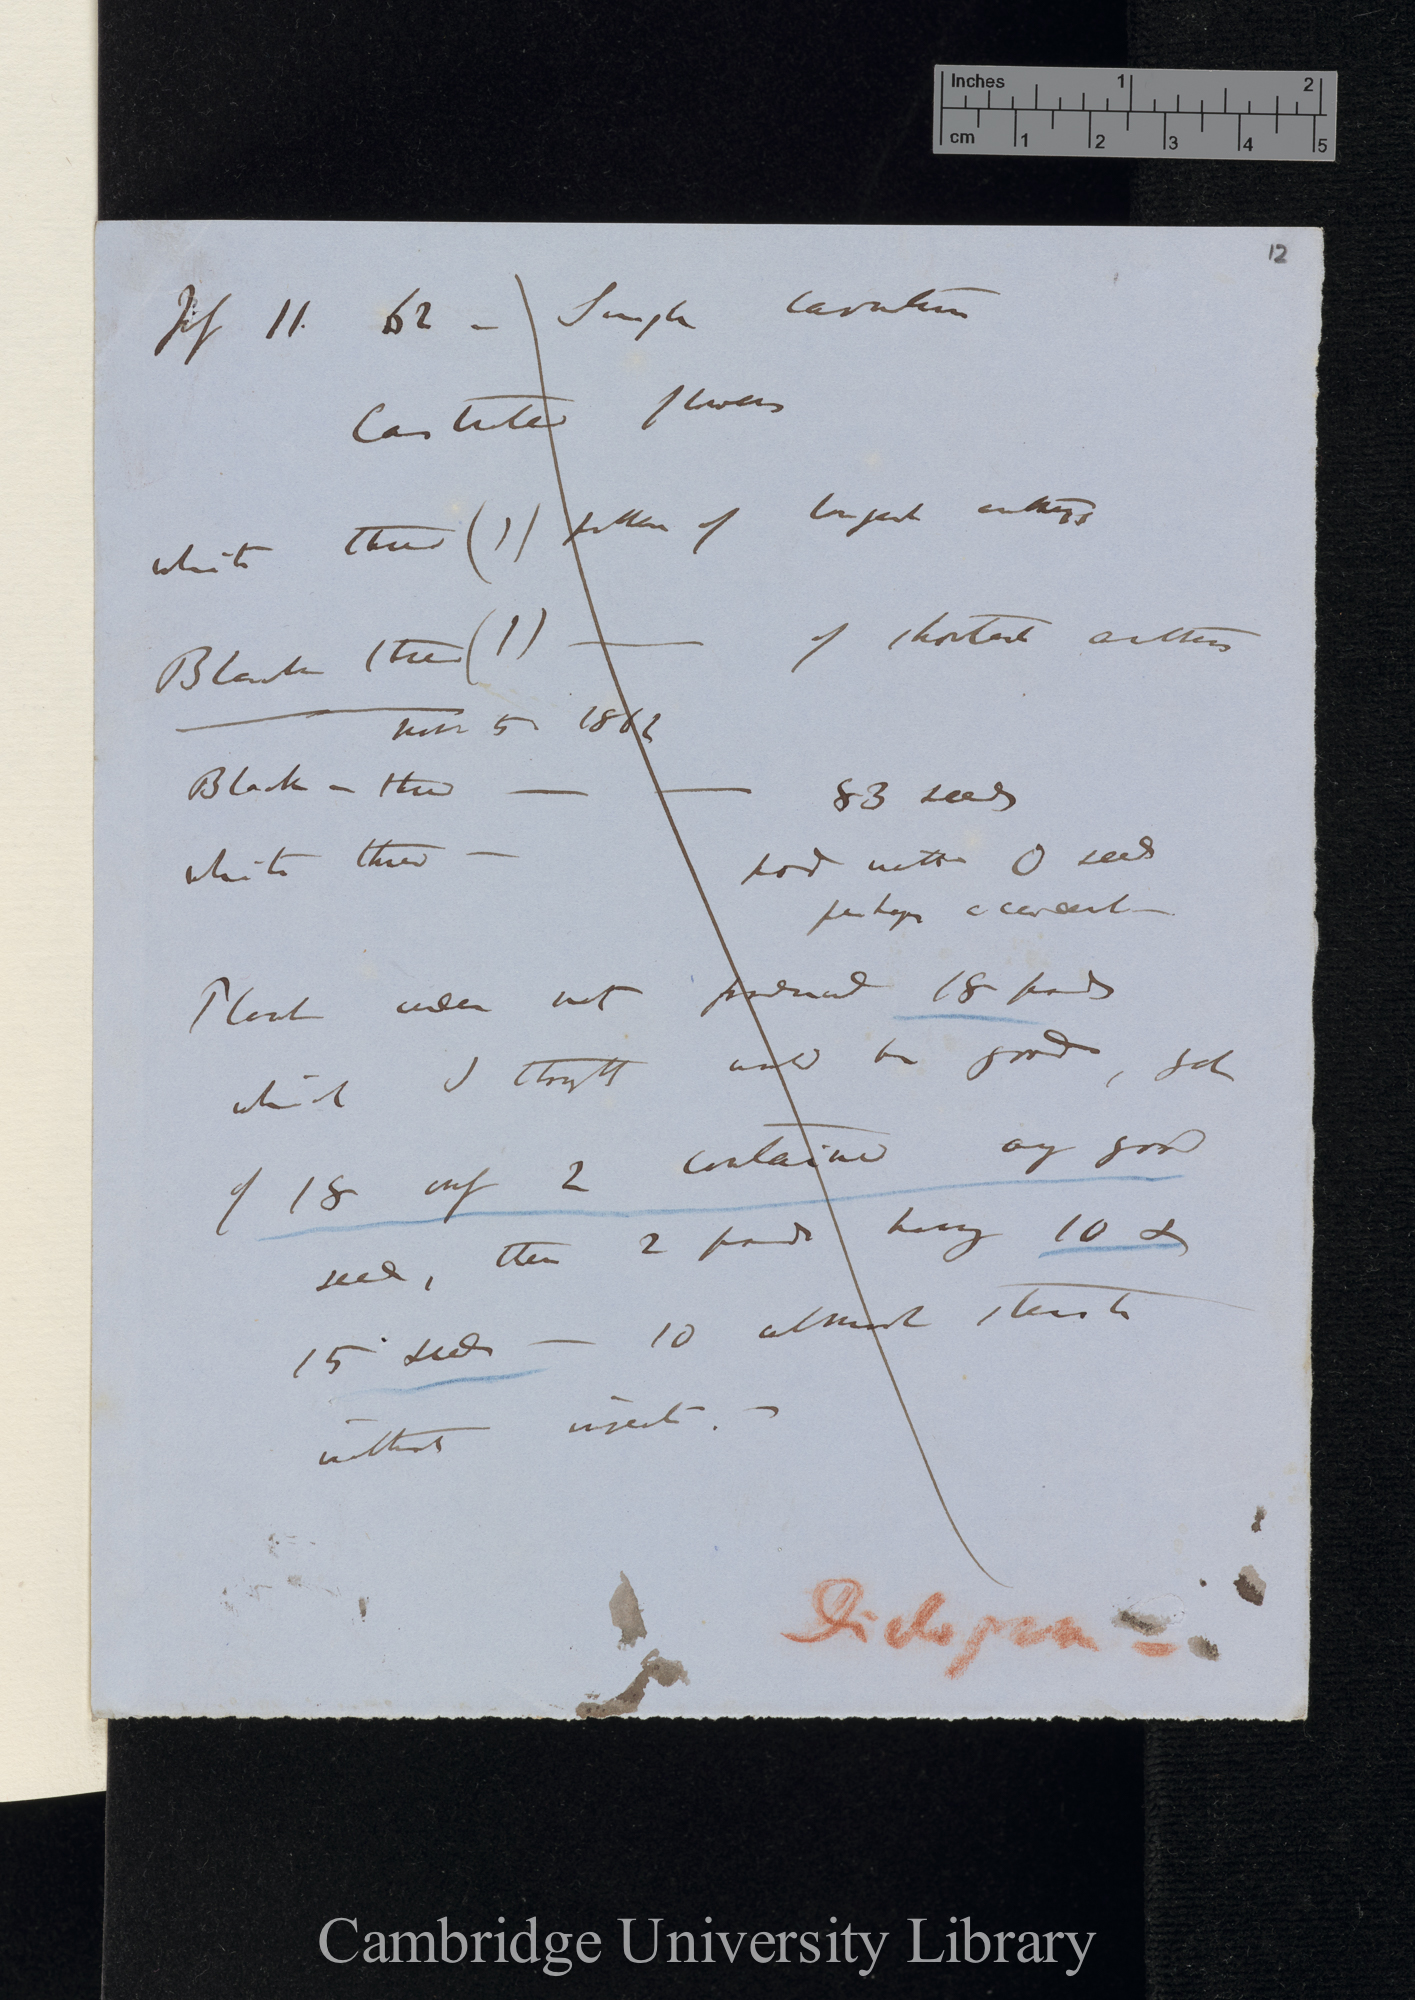 Inches 1 2
cm 1 2 3 4 5
12
July 11. 62 — Single Carnation
Castrated flowers
White thread (1) pollen of longest anthers
Black thread (1) — of shortest anthers
Nov 5 1862
Black — thread — — 83 seeds
White thread — pod with 0 seed
perhaps accident —
Plant under net produced 18 pods
which I thought would be good, yet
of 18 only 2 contained any good
seed, these 2 pods having 10 &
15 seeds — so almost sterile
without insects. —
Dichogam —
Cambridge University Library